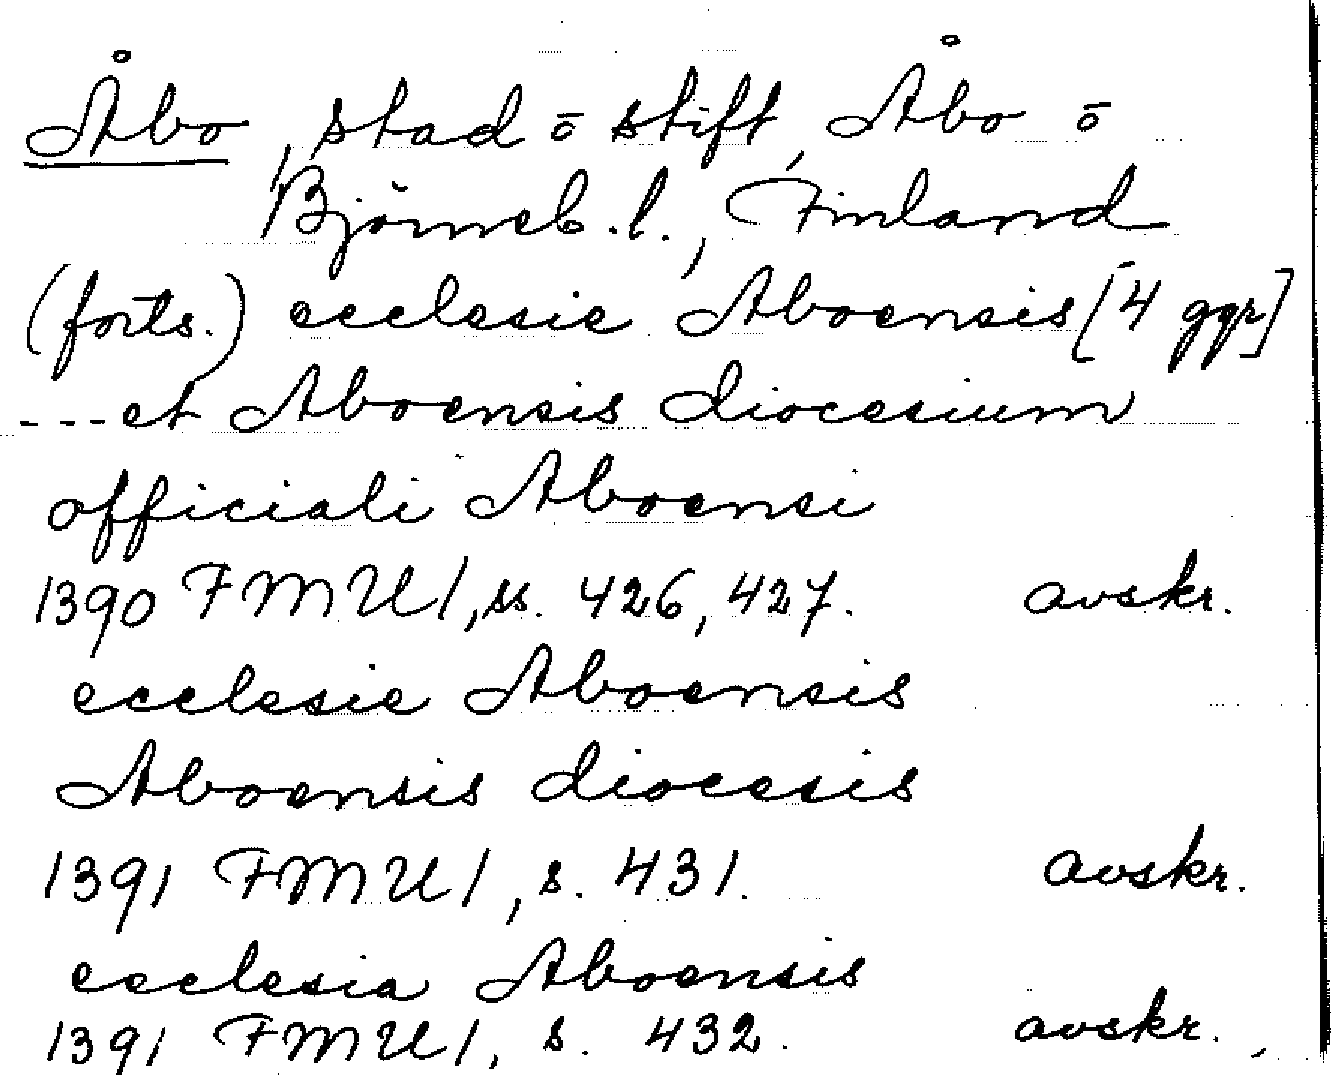 Åbo, stad ō stift, Åbo ō
Björneb. l., Finland
(forts.) ecclesie Aboensis [4 ggr]
--- et Aboensis diocesium
officiali Aboensi
1390 FMU 1, ss. 426, 427. avskr.
ecclesie Aboensis
Aboensis diocesis
1391 FMU 1, s. 431. avskr.
ecclesia Aboensis
1391 FMU 1, s. 432. avskr.